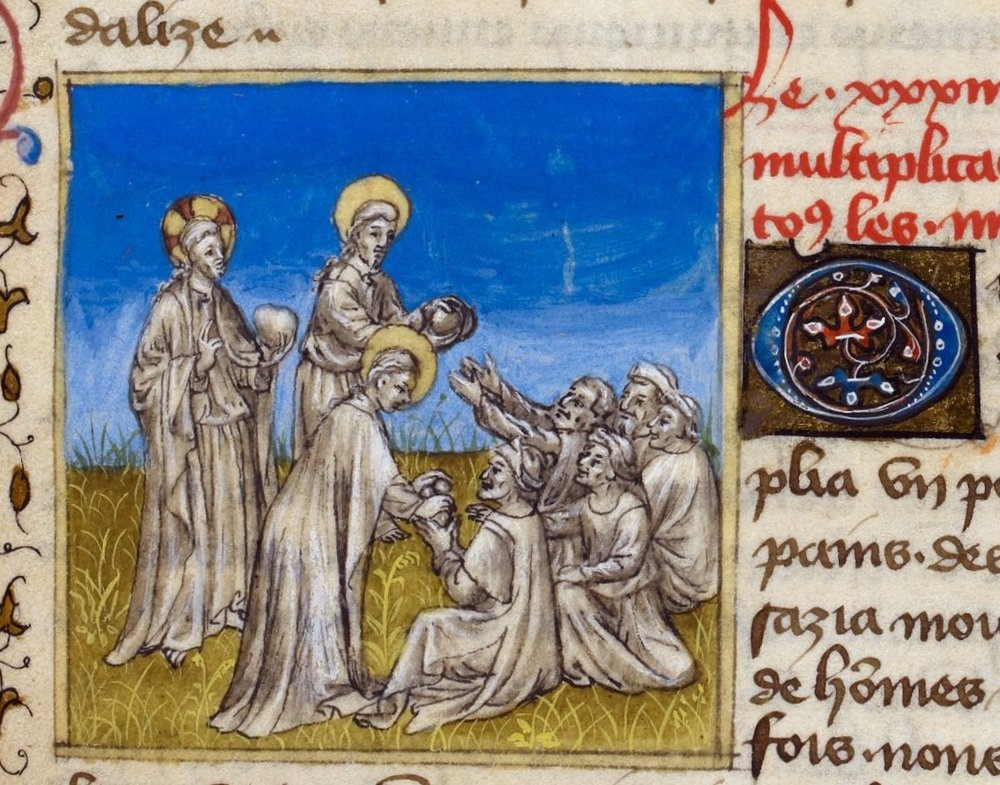 dalize
Le . xxxiii
multiplica
toꝰ les . m
plia vn pe
pains . des
sazia mou
de hōmes
fois . nons